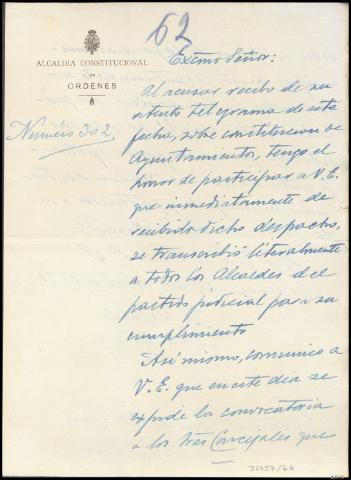 62
ALCALDIA CONSTITUCIONAL
DE
ORDENES
Número 302.
Excmo Señor:
Al acusar recibo de su
atento telegrama de esta
fecha, sobre constitucion de
Ayuntamientos, tengo el
honor de participar a V.E.
que inmediatamente de
recibido dicho despacho,
se transcribió literalmente
a todos los Alcaldes del
partido judicial para su
cumplimiento
Asi mismo, comunico a
V.E. que en este dia se
expide la convocatoria
a los tres Concejales que
32457/66